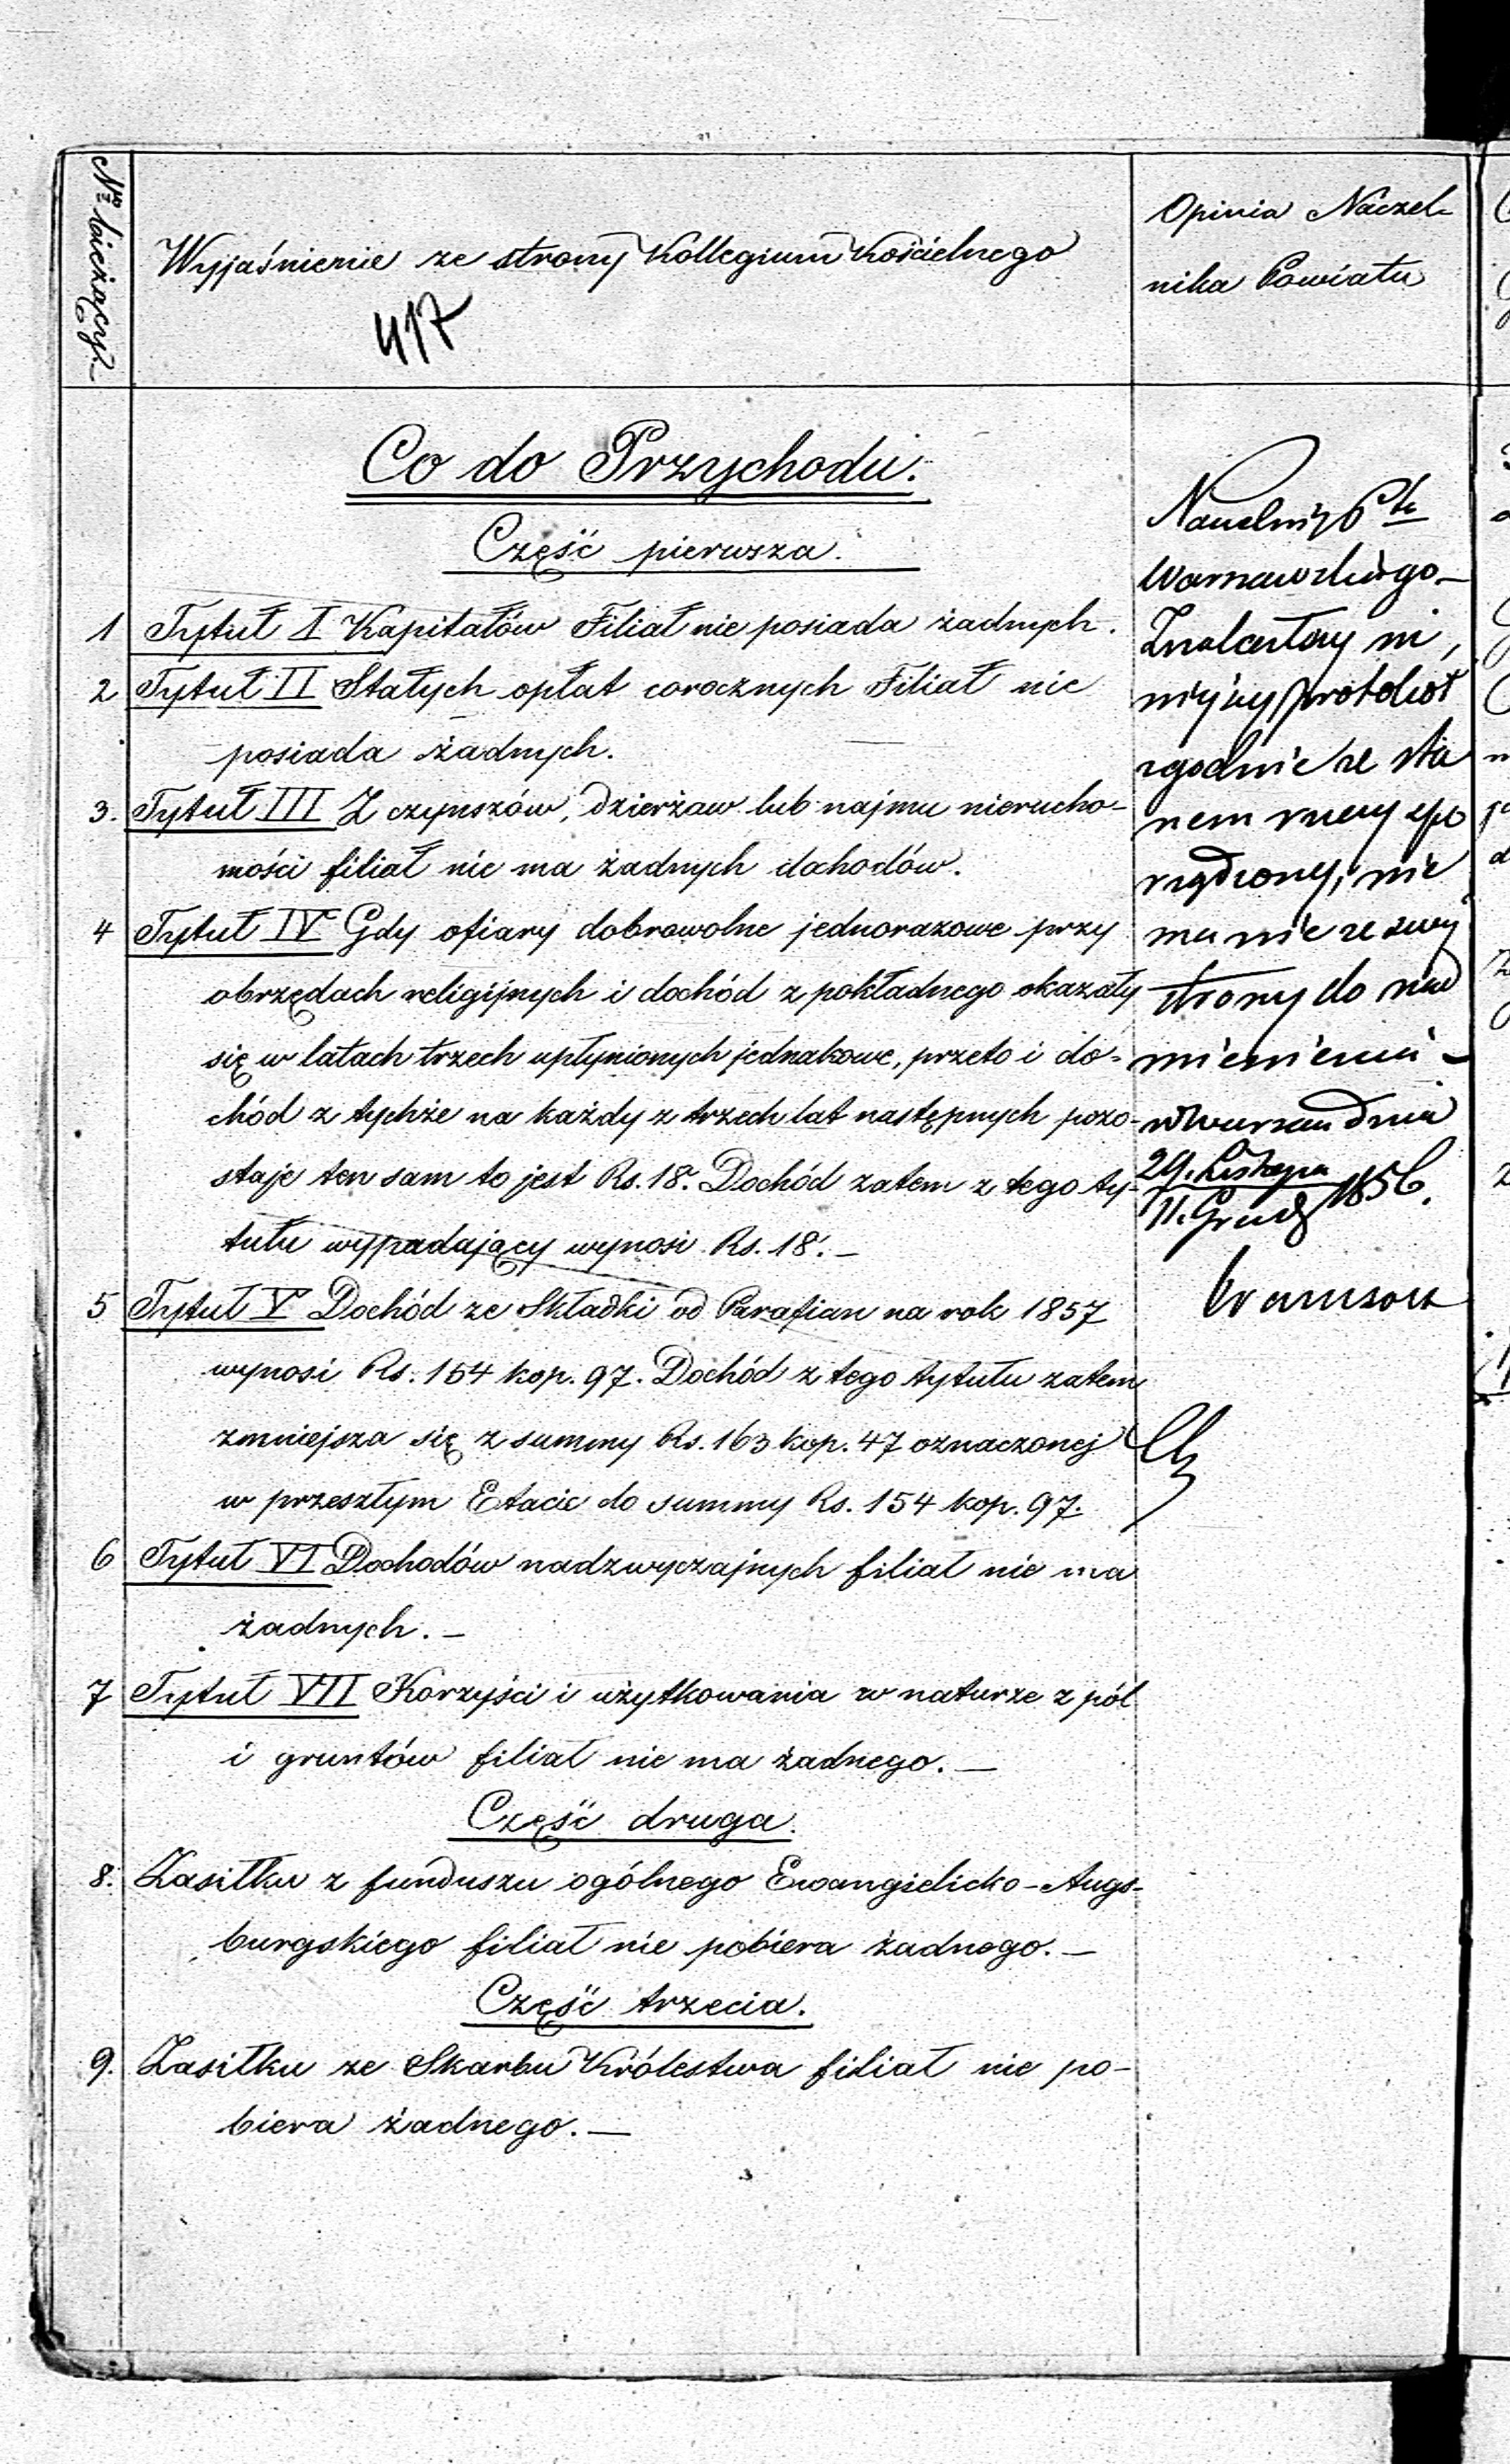 Nro bieżący.
Wyjaśnienie ze strony Kollegium Kościelnego
417
Opinia Naczel-
nika Powiatu
Co do Przychodu.
Część pierwsza.
1 Tytuł I Kapitałów Filiał nie posiada żadnych.
2 Tytuł II Stałych opłat corocznych Filiał nie
posiada żadnych.
3. Tytuł III Z czynszów, dzierżaw lub najmu nierucho-
mości filiał nie ma żadnych dochodów.
4 Tytuł IV Gdy ofiary dobrowolne jednorazowe przy
obrzędach religijnych i dochód z pokładnego okazały
się w latach trzech upłynionych jednakowe, przeto i do-
chód z tychże na każdy z trzech lat następnych pozo-
staje ten sam to jest Rs. 18. Dochód zatem z tego ty-
tułu wypadający wynosi Rs. 18. –
5 Tytuł V Dochód ze Składki od Parafian na rok 1857
wynosi Rs. 154 kop. 97. Dochód z tego tytułu zatem
zmniejsza się z summy Rs. 163 kop. 47 oznaczonej
w przeszłym Etacie do summy Rs. 154 kop. 97.
6 Tytuł VI Dochodów nadzwyczajnych filiał nie ma
żadnych. –
7 Tytuł VII Korzyści i użytkowania w naturze z pól
i gruntów filiał nie ma żadnego. –
Część druga.
8. Zasiłku z funduszu ogólnego Ewangielicko-Augs-
burgskiego filiał nie pobiera żadnego. –
Część trzecia.
9. Zasiłku ze Skarbu Królestwa filiał nie po-
biera żadnego. –
Naczelnik Ptu
Warszawskiego –
Znalazłszy ni,
niejszy protokół
zgodnie ze sta
nem rzeczy spo
rządzony, nie
ma nic ze swej
strony do nad
mienienia –
w Warszaw dnia
29. Listopa
11. Grud 1856.